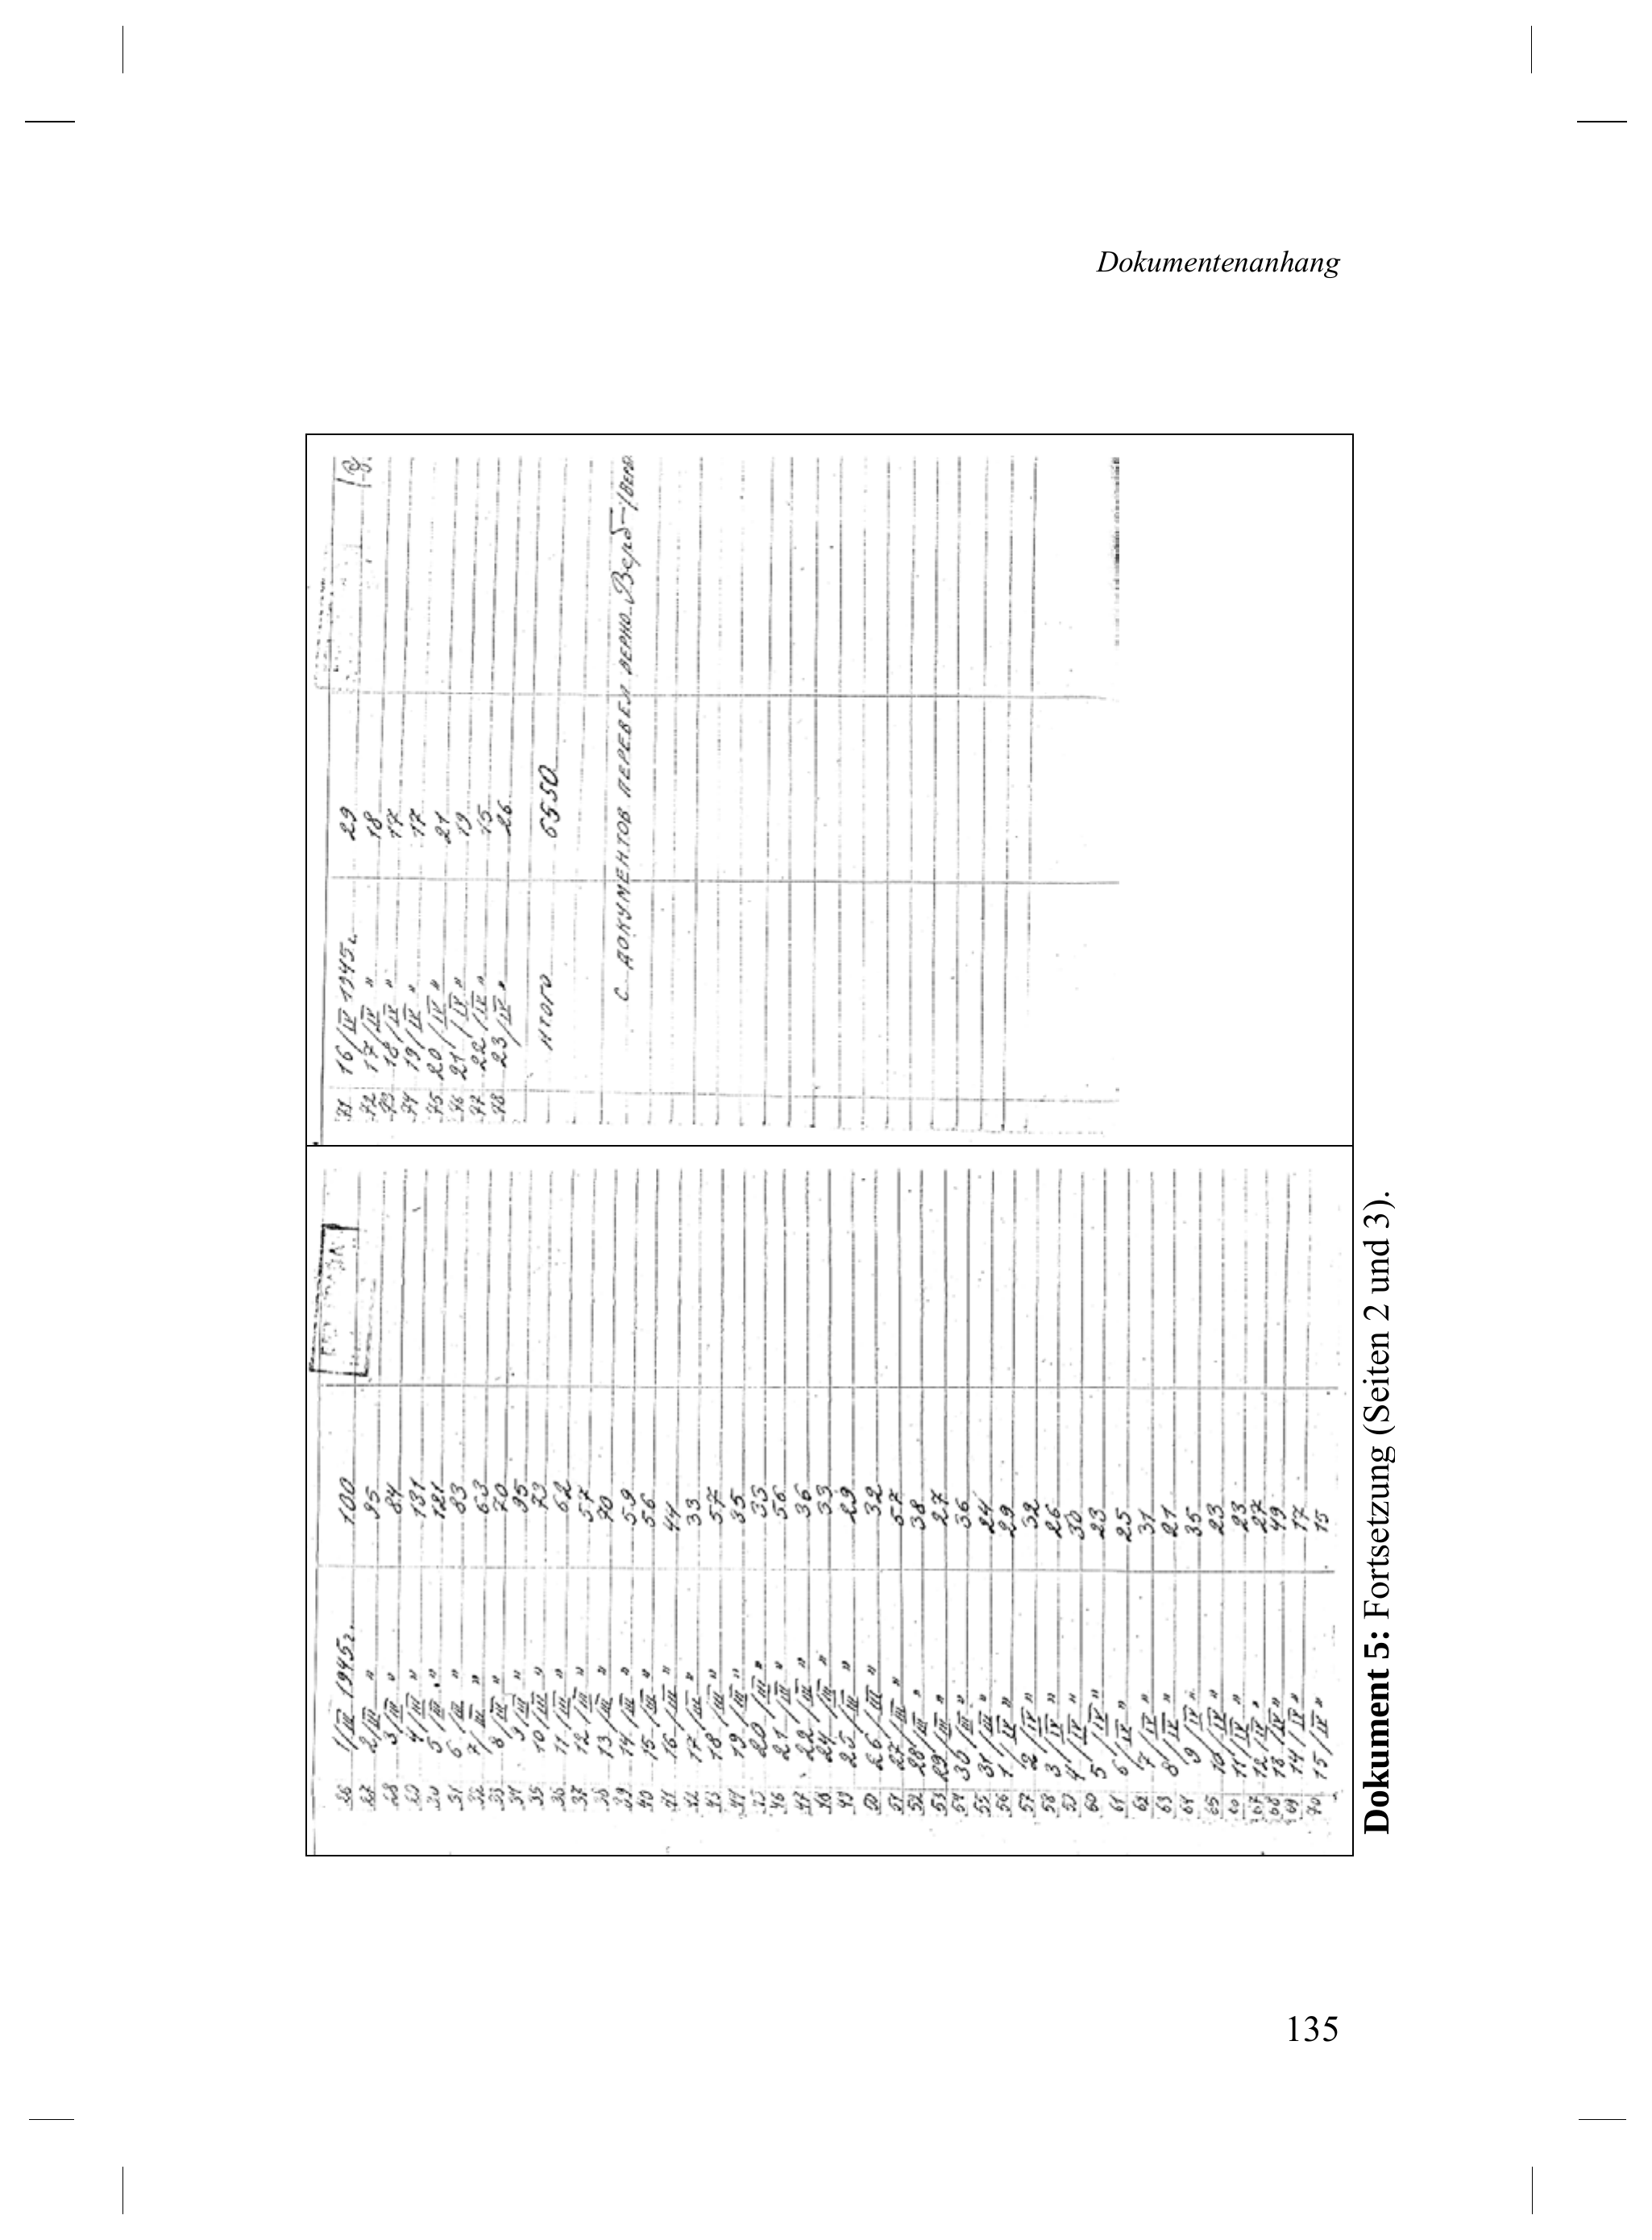 Dokumentenanhang
1/III 1945г. 100
2/III " 95
3/III " 84
4/III " 131
5/III " 121
6/III " 83
7/III " 63
8/III " 70
9/III " 95
10/III " 73
11/III " 62
12/III " 57
13/III " 70
14/III " 59
40 15/III " 56
16/III " 44
17/III " 33
18/III " 57
19/III " 35
20/III " 35
46 21/III " 56
47 22/III " 36
48 24/III " 33
49 25/III " 29
50 26/III " 32
51 27/III " 57
52 28/III " 38
53 29/III " 27
54 30/III " 36
55 31/III " 24
56 1/IV " 29
57 2/IV " 32
58 3/IV " 26
59 4/IV " 30
60 5/IV " 23
61 6/IV " 25
62 7/IV " 31
63 8/IV " 21
64 9/IV " 35
65 10/IV " 23
66 11/IV " 23
67 12/IV " 27
68 13/IV " 49
69 14/IV " 17
70 15/IV " 15
71 16/IV 1945г. 29
72 17/IV " 18
73 18/IV " 17
74 19/IV " 17
75 20/IV " 21
76 21/IV " 19
77 22/IV " 15
78 23/IV " 26
ИТОГО 6550
С ДОКУМЕНТОВ ПЕРЕВЕЛ ВЕРНО
Dokument 5: Fortsetzung (Seiten 2 und 3).
135